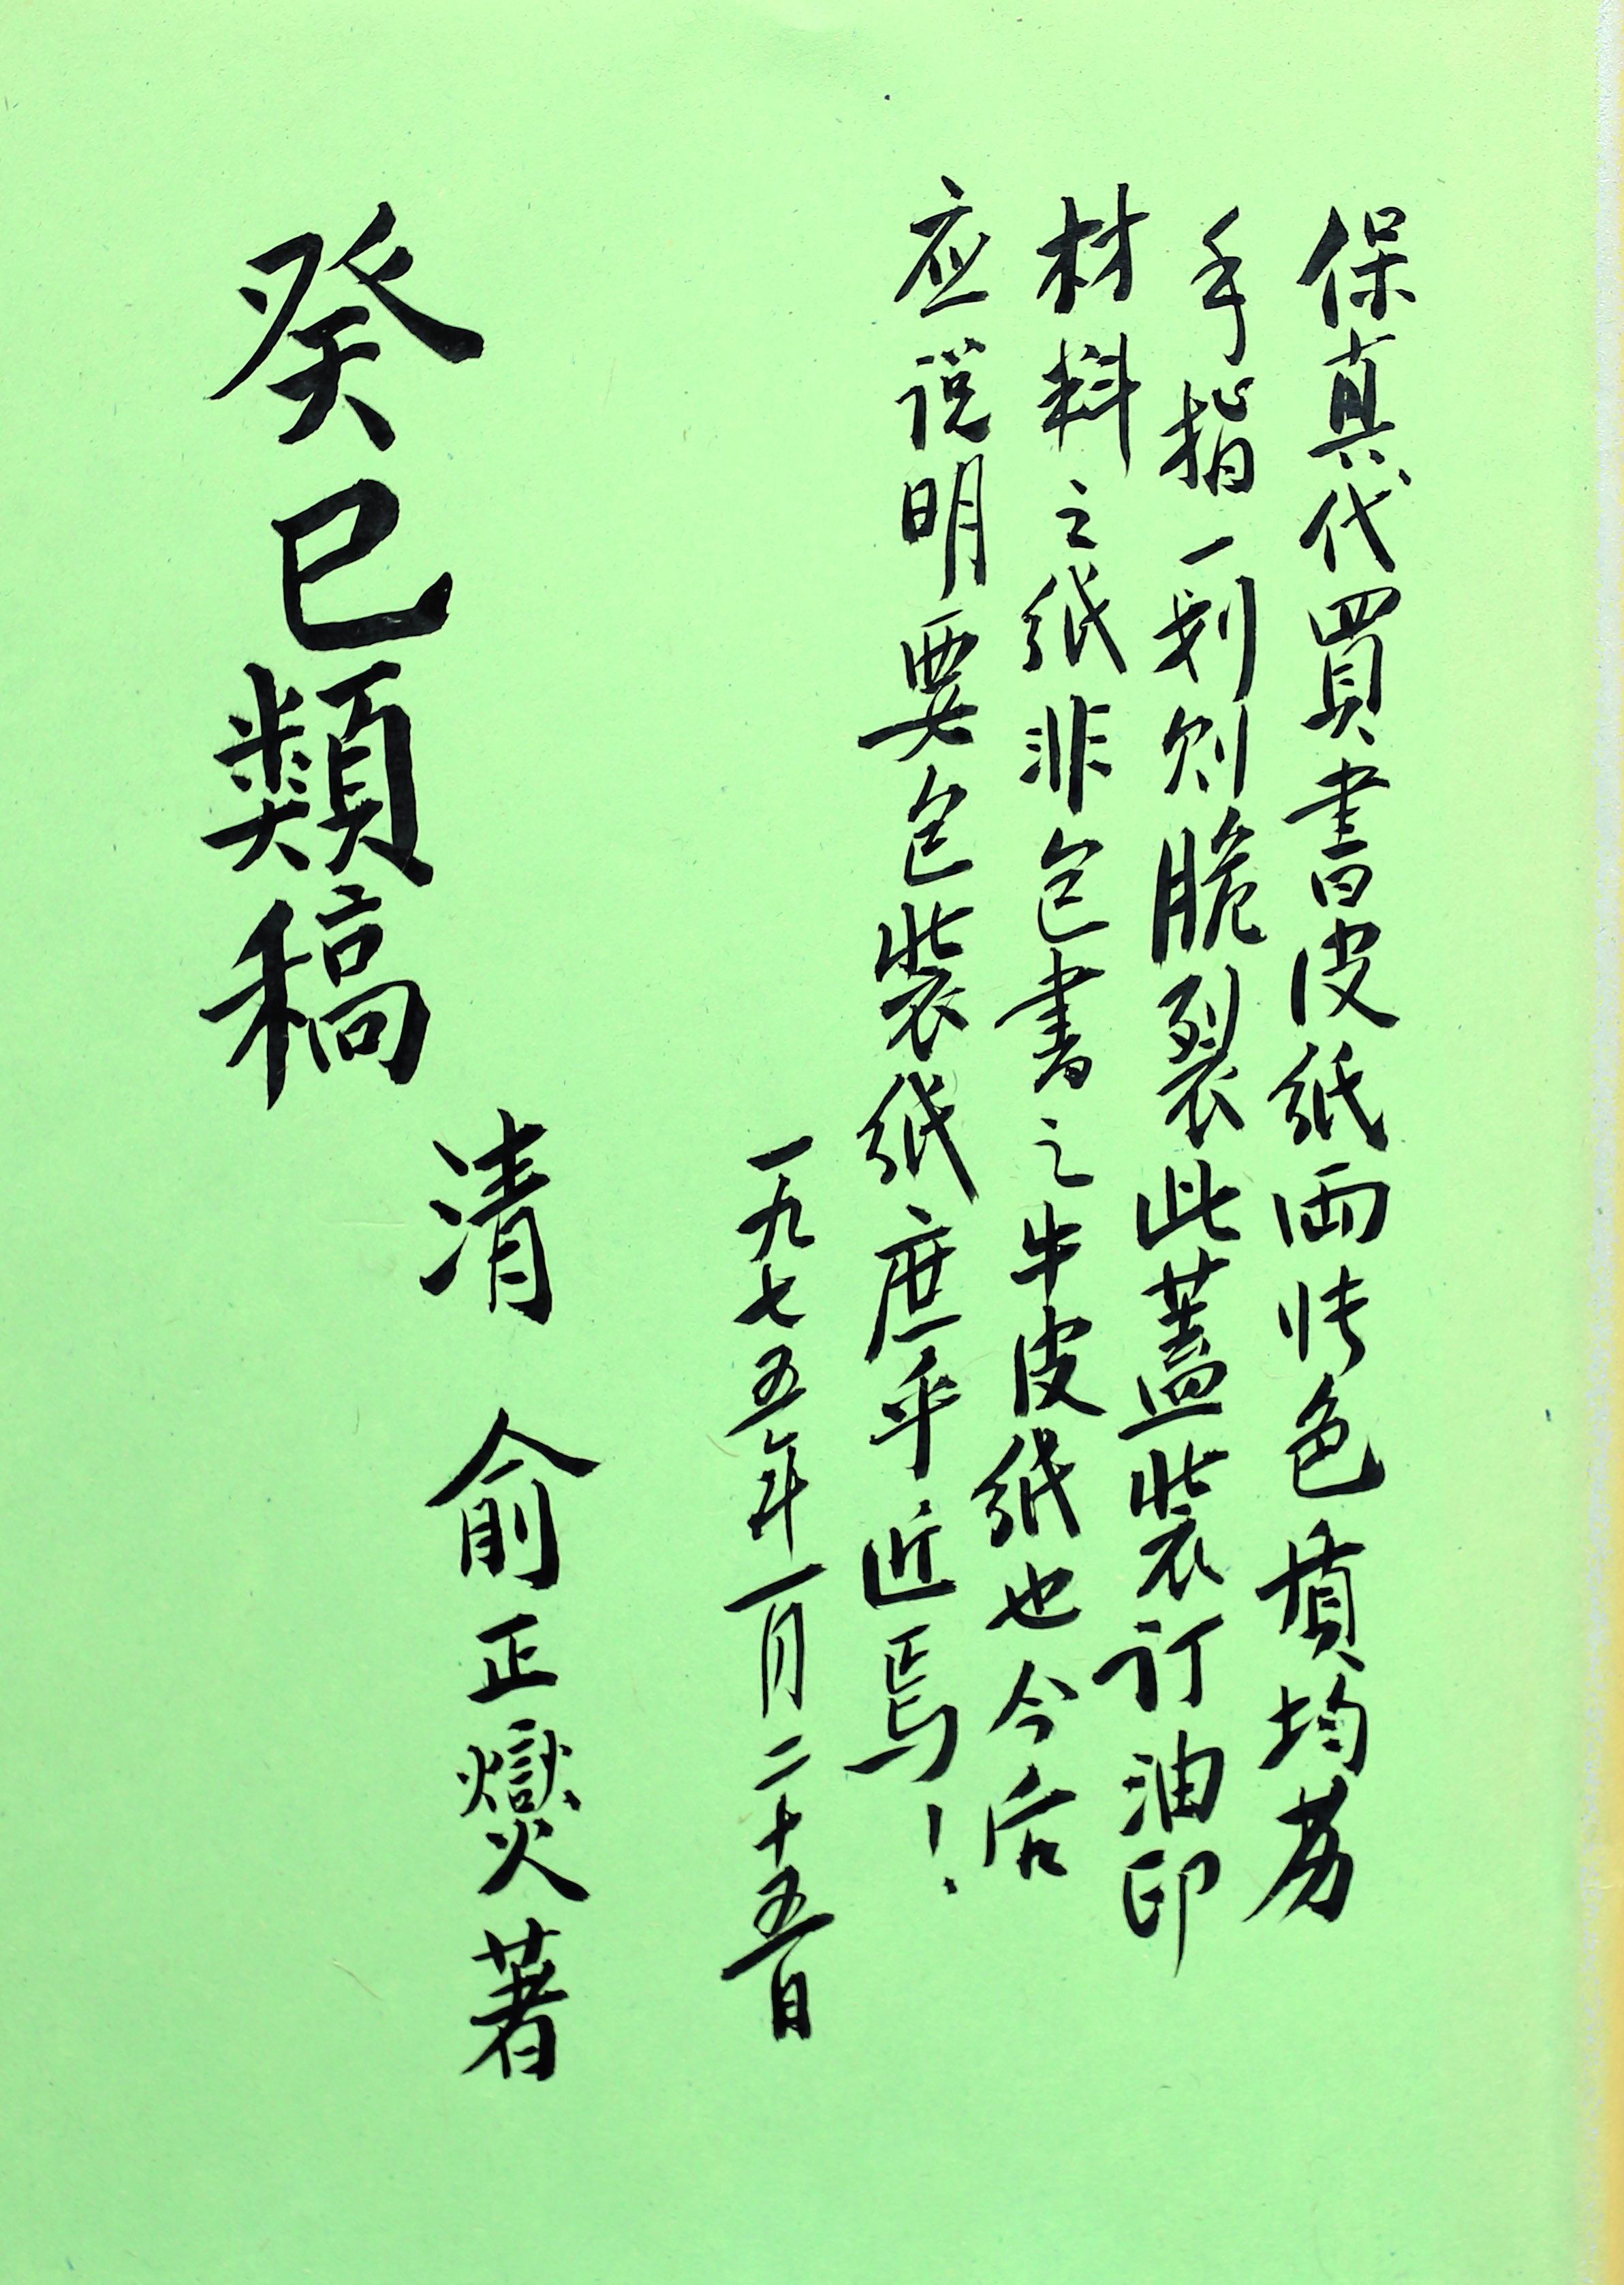 保真代買書皮紙两帋色墳均荔
手指一划则脆裂此蓋裝订油印
材料之紙非包書之牛皮紙也今后
应说明要包裝紙庶乎近焉！
一九七五年一月二十五日
清 俞正燮著
癸巳類稿